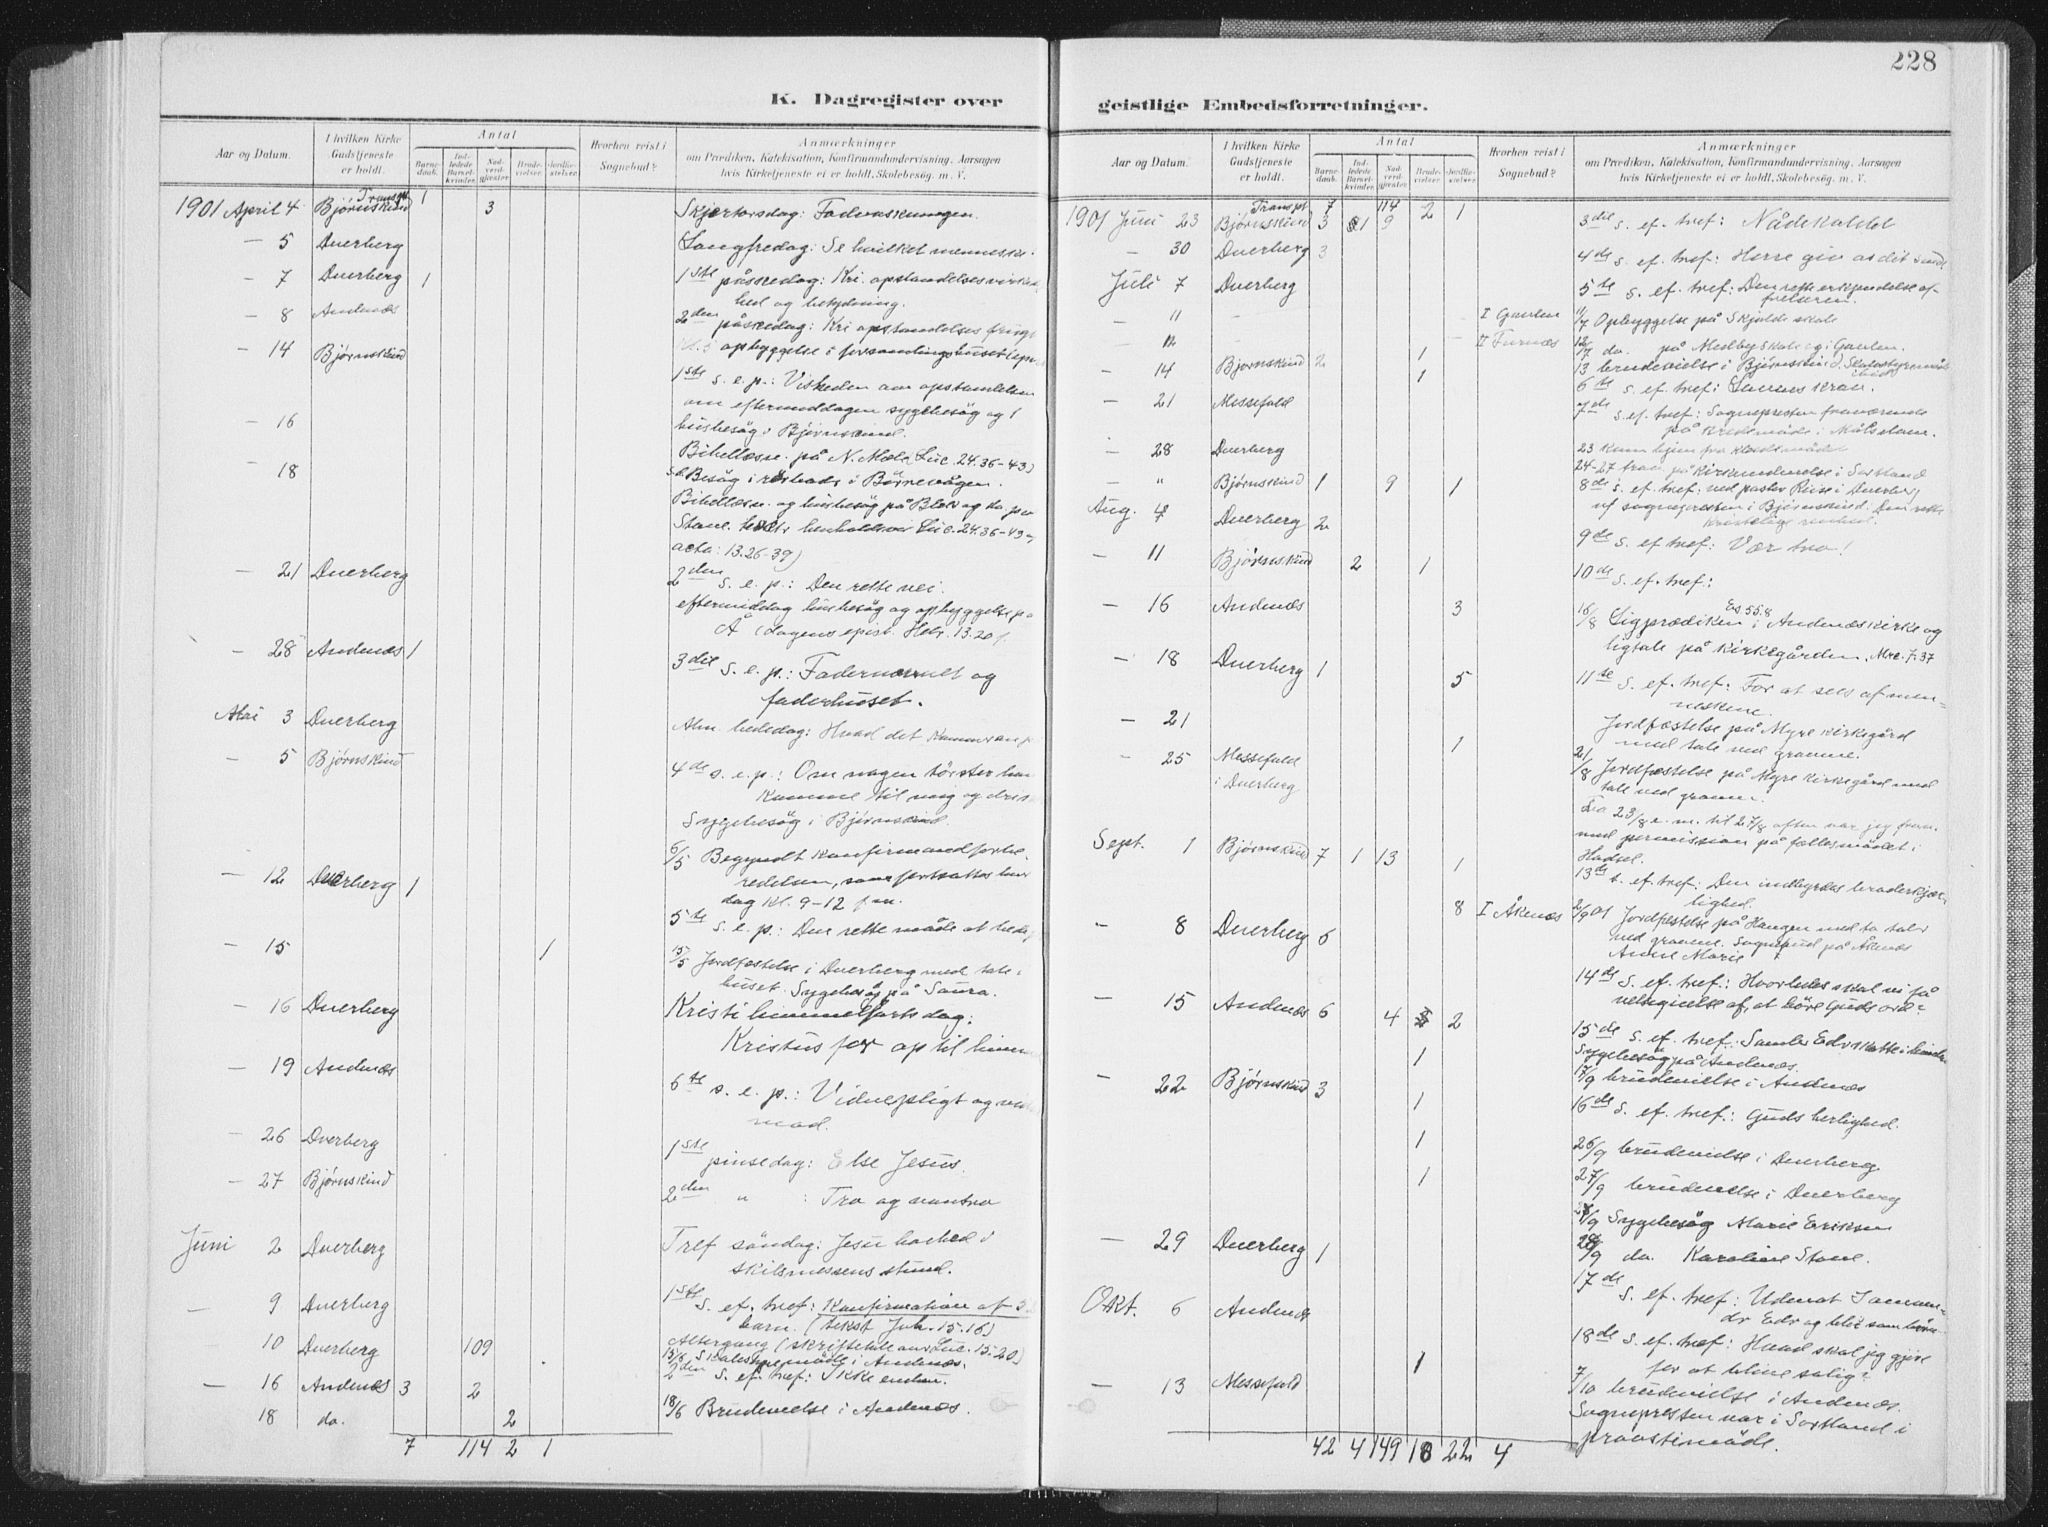 228
K. Dagregister over
geistlige Embedsforretninger.
Aar og Datum.
I hvilken Kirke Gudstjeneste er holdt.
Antal
Barnedaab.
Indledede Barselkvinder.
Nadverdgjester.
Brudevielser.
Jordfæstelser.
Hvorhen reist i Sognebud?
Anmærkninger
om Prædiken, Katekisation, Konfirmandundervisning. Aarsagen
hvis Kirketjeneste ei er holdt. Skolebesøg. m. V.
Transpt 1
1901 April 4 Bjørnskind 3 Skjærtorsdag:
- 5 Dverberg Langfredag: Se hvilket menneske.
- 7 Dverberg 1 1ste påskedag: Kri. opstandelses
hed og betydning.
- 8 Andenæs 2den påskedag: Kri opstandelses frugt
opbyggelse i forsamlingshuset
- 14 Bjørnskind 1ste s. e. p.: Visheden om opstandelsen
om eftermiddagen sygebesøg og 1
husbesøg i Bjørnskind.
- 16 Bibellæsn. på N. Mæla (Luc. 24.36-43)
- 18 Besøg i
Bibellæsn. og husbesøg på Bleik og do. på
Stave henholdsvis Luc. 24.36-49
acta: 13.26-39)
- 21 Dverberg 2den s. e. p.: Den rette vei.
eftermiddag husbesøg og opbyggelse på
Å (dagens epist. Hebr. 13.20 f.
- 28 Andenæs 1 3die s. e. p.: Fadernavnet og
faderhuset.
Mai 3 Dverberg Alm. bededag: Hvad det kommer an p
- 5 Bjørnskind 4de s. e. p.: Om nogen tørster han
komme til mig og drik
Sygebesøg i Bjørnskind.
6/5 Begyndt konfirmandforbe-
redelsen, som fortsattes hver
dag kl. 9-12 fm.
- 12 Dverberg 1 5te s. e. p.: Den rette måde at bede
- 15 1 15/5 Jordfæstelse i Dverberg med tale i
huset. Sygebesøg på Saura.
- 16 Dverberg Kristi himmelfartsdag:
Kristus for op til himm
- 19 Andenæs 6te s. e. p.: Vidnepligt og
mod.
- 26 Dverberg 1ste pinsedag: Else Jesus
- 27 Bjørnskind 2den " : Tro og vantro
Juni 2 Dverberg Tref. søndag: Jesu
skilsmessens stund.
- 9 Dverberg 1ste s. ef. tref: Konfirmation af
barn. (tekst Joh. 15.16)
10 Dverberg 109 Altergang (skriftetale over Luc. 15.20)
15/6 Skolestyremøde i Andenæs.
- 16 Andenæs 3 2 2den s. ef. tref: Ikke endnu.
18 do. 2 18/6 Brudevielse i Andenæs.
7 114 2 1
Transpt 7 114 2 1
1901 Juni 23 Bjørnskind 3 1 9 3die s. ef. tref: Nådekaldet
- 30 Dverberg 3 4de s. ef. tref: Herre giv os dit sind
Juli 7 Dverberg 5te s. ef. tref: Den rette erkjendelse af
frelseren.
- 11 - I Gavlen 11/7 Opbyggelse på Skjolde skole
- 12 - I Furnæs 12/7 do. på Medby skole og i Gavlen.
- 14 Bjørnskind 2 1 13 brudevielse i Bjørnskind.
1 6te s. ef. tref:
- 21 Messefald 7de s. ef. tref: Sognepresten fraværende
på kredsmøde i Målselven.
- 28 Dverberg 23 kom hjem fra kredsmødet
24-27 frav. på kirkeindvielse i Sortland
- " Bjørnskind 1 9 1 8de s. ef. tref: ved pastor Riise i Dverberg
af sognepresten i Bjørnskind. Den rette
Aug. 4 Dverberg 2 9de s. ef tref: Vær tro!
- 11 Bjørnskind 2 1 10de s. ef. tref:
- 16 Andenæs 3 16/8 Ligprædiken Es 55.8 i Andenæs kirke og
ligtale på kirkegården. Mrc. 7.37
- 18 Dverberg 1 5 11te s. ef. tref: For at sees af men-
neskene.
- 21 1 Jordfæstelse på Myre kirkegård
med tale ved graven.
- 25 Messefald i Dverberg 21/8 Jordfæstelse på Myre kirkegård med
tale ved graven.
Fra 23/8 e. m. til 27/8 aften var jeg frav.
med permission på fællesmødet i
Hadsel.
Sept. 1 Bjørnskind 7 1 13 1 13de s. ef. tref: Den indbyrdes broderkjær-
lighed.
- 8 Dverberg 6 8 I Åknæs 2/9 01 Jordfæstelse på Haugen med to taler
ved gravene. Sognebud på Åknæs
Anne Marie
14de s. ef. tref: Hvorledes skal vi få
velsignelse af, at høre Guds ord?
- 15 Andenæs 6 4 2 15de s. ef. tref: Samler Eder skatte i himlen
Sygebesøg på Andenæs.
1 17/9 brudevielse i Andenæs
- 22 Bjørnskind 3 1 16de s. ef. tref: Guds herlighed.
1 26/9 brudevielse i Dverberg
1 27/9 brudevielse i Dverberg
Sygebesøg Marie Eriksen
28/9 do. Karoline Stave.
- 29 Dverberg 1 17de s. ef. tref:
Okt. 6 Andenæs 18de s. ef. tref: Hvad skal jeg gjøre
for at blive salig?
1 7/10 brudevielse i Andenæs.
- 13 Messefald Sognepresten var i Sortland i
provstimøde.
42 4 149 18 22 4